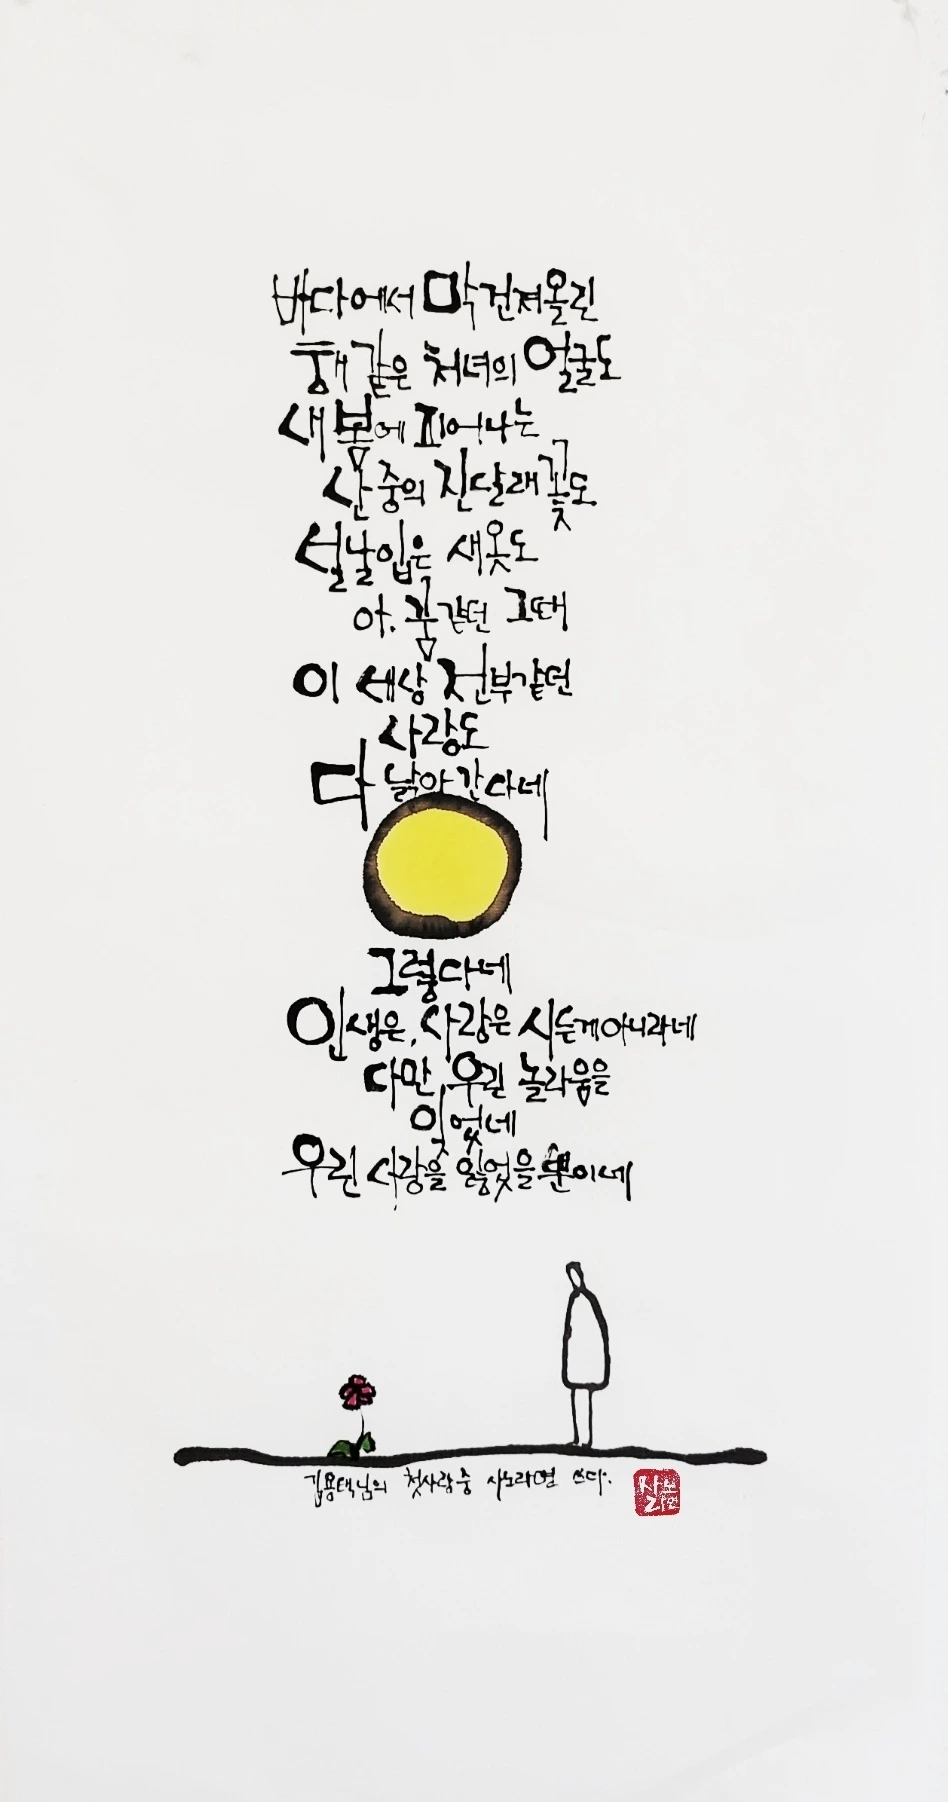 바다에서 막 건져올린
해 같은 처녀의 얼굴도
새봄에 피어나는
산중의 진달래꽃도
설날 입은 새옷도
아, 꿈같던 그때
이 세상 전부같던
사랑도
다 낡아간다네
그렇다네
인생은, 사랑은 시든게 아니라네
다만 우린 놀라움을
잊었네
우린 사랑을 잃었을 뿐이네
김용택님의 첫사랑중 사노라면 쓰다.
사노라면